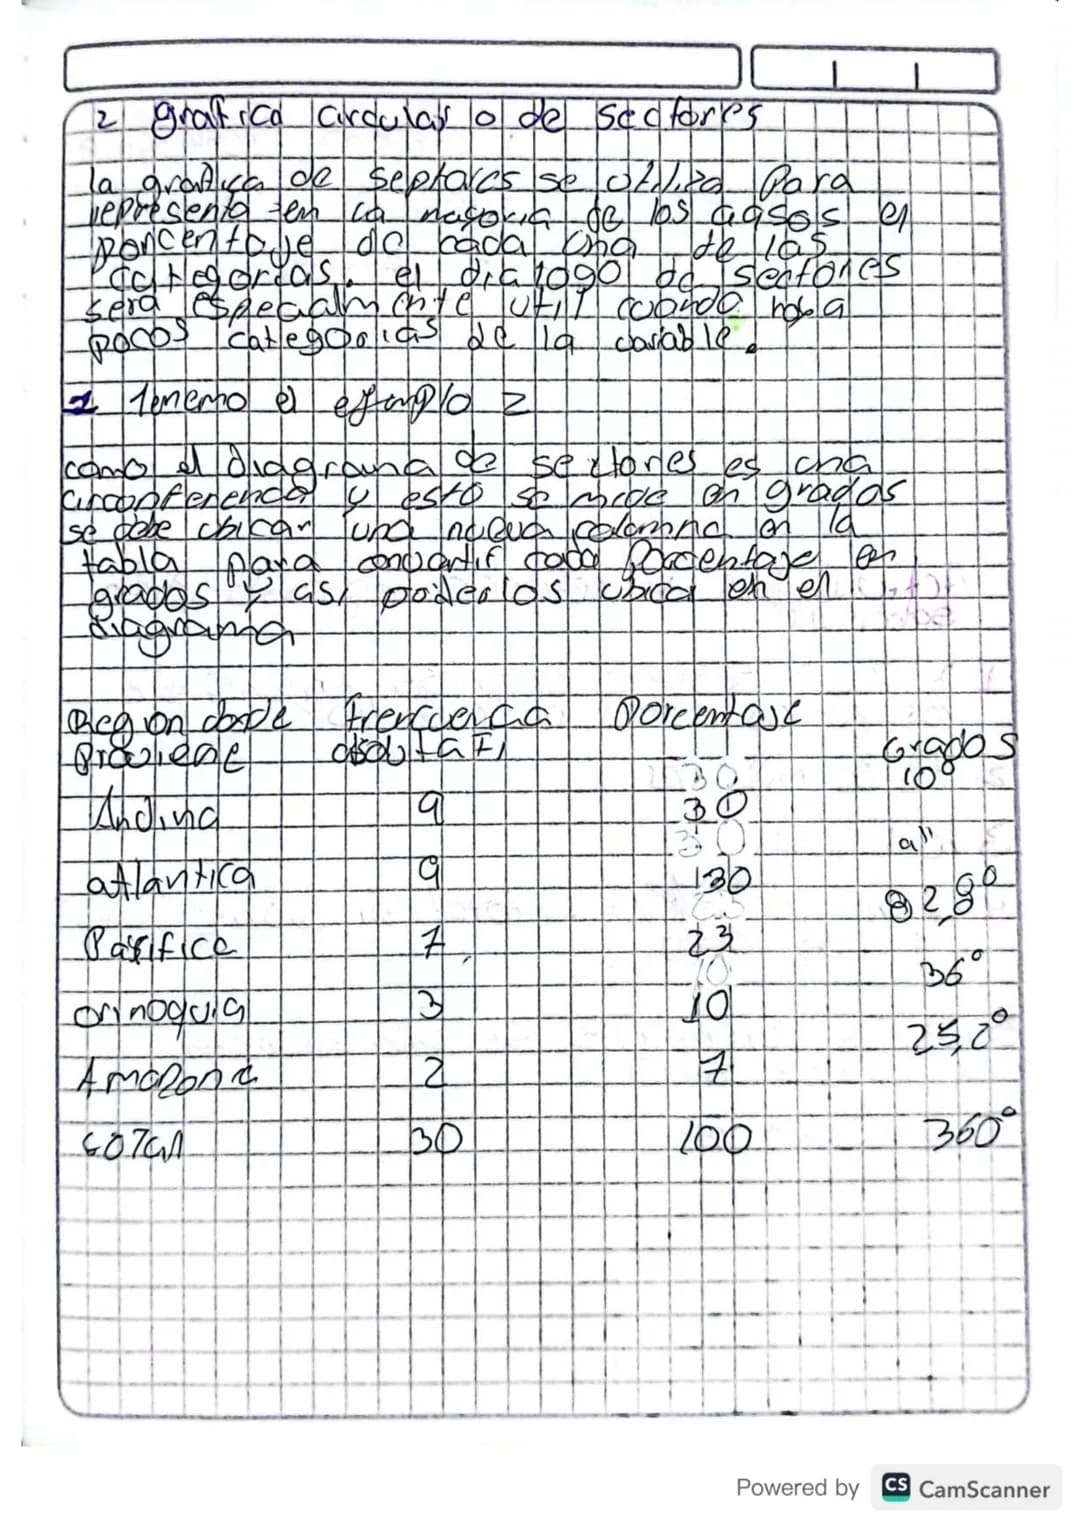 2 grafica circular o de sectores
la grafica de septores se utiliza Para
representa en la mayoria de los casos el
porcentaje de cada una de las
categorias. el dialogo de sectores
sera especialmente util cuando haya
pocos categorias de la variable.
1 Tenemo el ejemplo 2
como el diagrama de sectores es una
circonferencia y esto se mide en grados
se debe ubicar una nueva colomna en la
tabla para convartir cada Porcentaje en
grados y asi poderlos ubica en el
diagrama
Region donde frencuencia Porcentaje
Proviene absoluta Fi Grados
10°
Andina 9 30
a"
atlantica 9 130
82,8°
Pasifica 7 23
36°
orinoquia 3 10
25,2°
Amazonia 2 7
total 30 100 360°
Powered by CS CamScanner